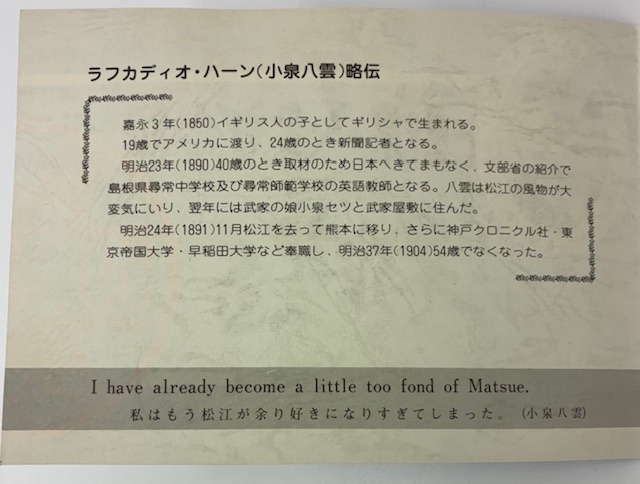 ラフカディオ・ハーン(小泉八雲)略伝
嘉永3年(1850)イギリス人の子としてギリシャで生まれる。
19歳でアメリカに渡り、24歳のとき新聞記者となる。
明治23年(1890)40歳のとき取材のため日本へきてまもなく、文部省の紹介で
島根県尋常中学校及び尋常師範学校の英語教師となる。八雲は松江の風物が大
変気にいり、翌年には武家の娘小泉セツと武家屋敷に住んだ。
明治24年(1891)11月松江を去って熊本に移り、さらに神戸クロニクル社・東
京帝国大学・早稲田大学など奉職し、明治37年(1904)54歳でなくなった。
I have already become a little too fond of Matsue.
私はもう松江が余り好きになりすぎてしまった。(小泉八雲)